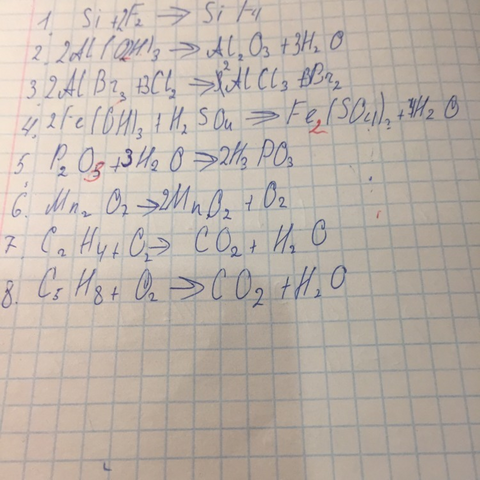 1. Si + 2F₂ → Si F₄
2. 2Al(OH)₃ → Al₂O₃ + 3H₂O
3 2AlBr₃ + 3Cl₂ → 2AlCl₃ + 3Br₂
4. 2Fe(OH)₃ + H₂SO₄ → Fe₂(SO₄)₃ + 4H₂O
5. P₂O₅ + 3H₂O → 2H₃PO₃
6. Mn₂O₂ → 2MnO₂ + O₂
7. C₂H₄ + O₂ → CO₂ + H₂O
8. C₃H₈ + O₂ → CO₂ + H₂O